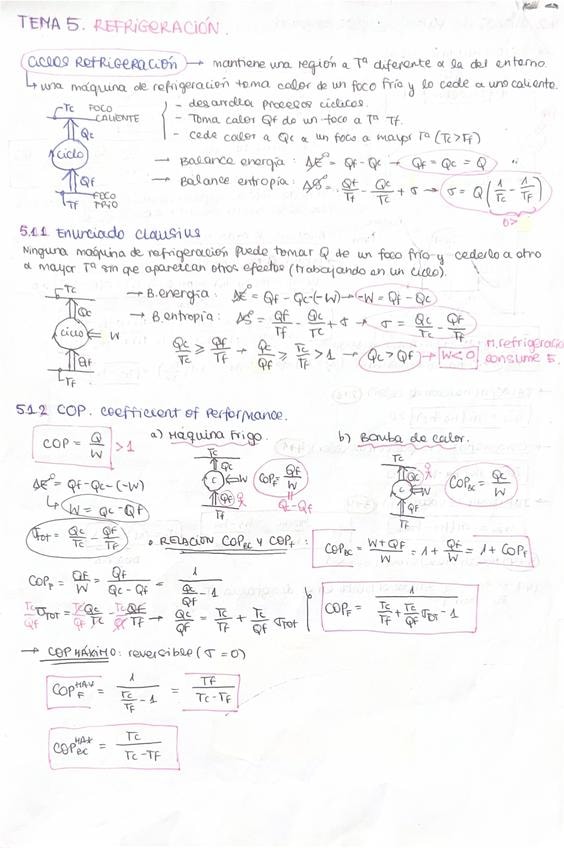 TEMA 5. REFRIGERACIÓN.
CICLOS REFRIGERACIÓN → mantiene una región a Tª diferente a la del entorno.
↳ una máquina de refrigeración toma calor de un foco frío y lo cede a uno caliente.
Tc FOCO CALIENTE
Qc
ciclo
Qf
Tf FOCO FRÍO
- desarrolla procesos cíclicos.
- Toma calor Qf de un foco a Tª Tf.
- cede calor a Qc a un foco a mayor Tª (Tc>Tf)
→ Balance energía: ΔE⁰ = Qf - Qc → Qf = Qc = Q
→ Balance entropía: ΔS⁰ = Qf/Tf - Qc/Tc + σ → σ = Q(1/Tc - 1/Tf)
0>
5.1.1 Enunciado Clausius
Ninguna máquina de refrigeración puede tomar Q de un foco frío y cederlo a otro
a mayor Tª sin que aparezcan otros efectos (trabajando en un ciclo).
Tc
Qc
ciclo
W
Qf
Tf
→ B.energía: ΔE⁰ = Qf - Qc - (-W) → -W = Qf - Qc
→ B.entropía: ΔS⁰ = Qf/Tf - Qc/Tc + σ → σ = Qc/Tc - Qf/Tf
Qc/Tc ≥ Qf/Tf → Qc/Qf ≥ Tc/Tf > 1 → Qc > Qf → W<0
M. refrigeración
consume
5.1.2 COP. Coefficient of Performance.
COP = Q/W > 1
a) Máquina Frigo.
Tc
Qc
C
W
Qf
Tf
COPF = Qf/W
Qc-Qf
b) Bomba de calor.
Tc
Qc
C
W
Qf
Tf
COPBC = Qc/W
ΔE⁰ = Qf - Qc - (-W)
↳ W = Qc - Qf
σTOT = Qc/Tc - Qf/Tf
• RELACION COPBC Y COPF:
COPBC = W+Qf/W = 1 + Qf/W = 1 + COPF
COPF = Qf/W = Qf/Qc - Qf = 1/Qc/Qf - 1
Tc/Qf σTOT = Tc/Qf Qc/Tc - Tc/Qf Qf/Tf → Qc/Qf = Tc/Tf + Tc/Qf σTOT
COPF = 1/Tc/Tf + Tc/Qf σTOT - 1
→ COP MÁXIMO: reversible (σ = 0)
COPF MAX = 1/Tc/Tf - 1 = Tf/Tc - Tf
COPBC MAX = Tc/Tc - Tf